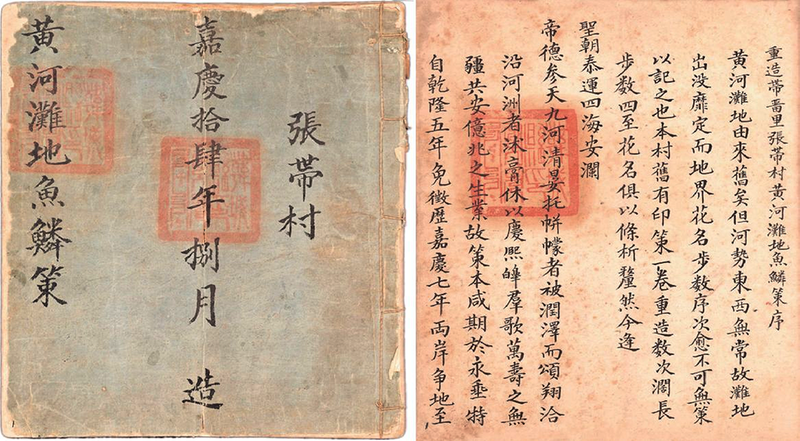 張帶村
嘉慶拾肆年捌月 造
黃河灘地魚鱗策
重造帶啚里張帶村黃河灘地魚鱗策序
黃河灘地由來舊矣但河勢東西無常故灘地
出没靡定而地界花名步數序次愈不可無策
以記之也本村舊有印策一卷重造数次濶長
步数四至花名俱以條析釐然今逢
聖朝泰運四海安瀾
帝德參天九河清晏托帡幪者被潤澤而頌翔洽
沿河洲者沐膏休以慶熙皡羣歌萬壽之無
疆共安億兆之生業故策本咸期於永垂特
自乾隆五年免徵歷嘉慶七年両岸争地至